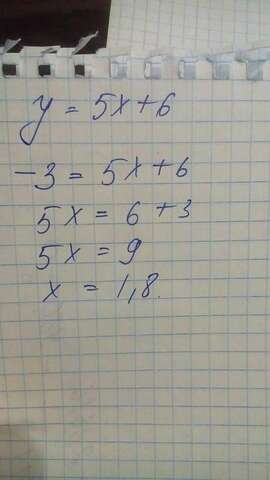 y = 5x+6
-3 = 5x+6
5x = 6+3
5x = 9
x = 1,8.